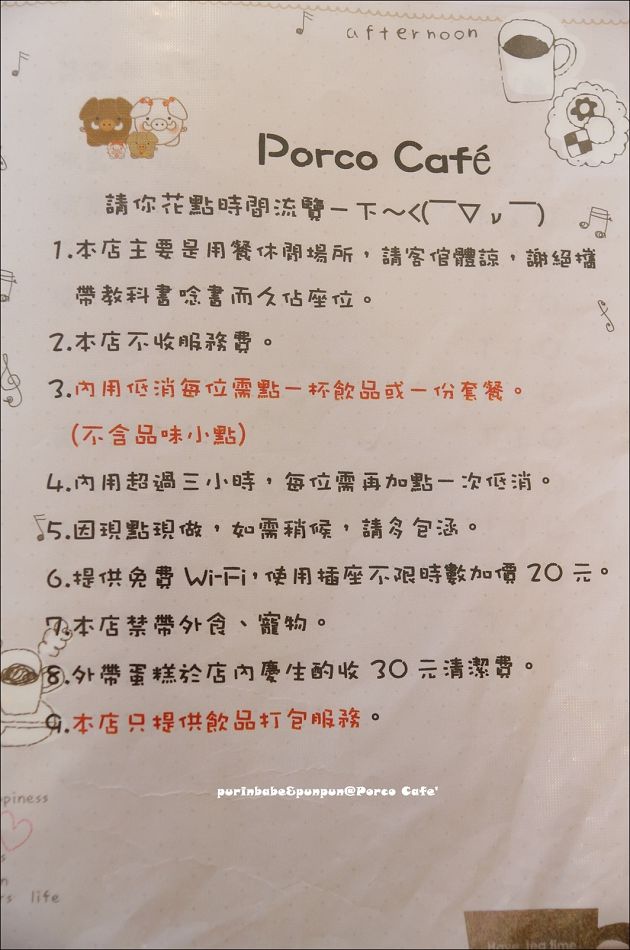 afternoon
Porco Café
請你花點時間流覽一下~<(￣▽ν￣)
1.本店主要是用餐休閒場所，請客倌體諒，謝絕攜
帶教科書唸書而久佔座位。
2.本店不收服務費。
3.內用低消每位需點一杯飲品或一份套餐。
(不含品味小點)
4.內用超過三小時，每位需再加點一次低消。
5.因現點現做，如需稍候，請多包涵。
6.提供免費 Wi-Fi，使用插座不限時數加價 20 元。
7.本店禁帶外食、寵物。
8.外帶蛋糕於店內慶生酌收 30 元清潔費。
9.本店只提供飲品打包服務。
purinbabe&punpun@Porco Cafe'
ppiness
s
n
rs life
Have tea time